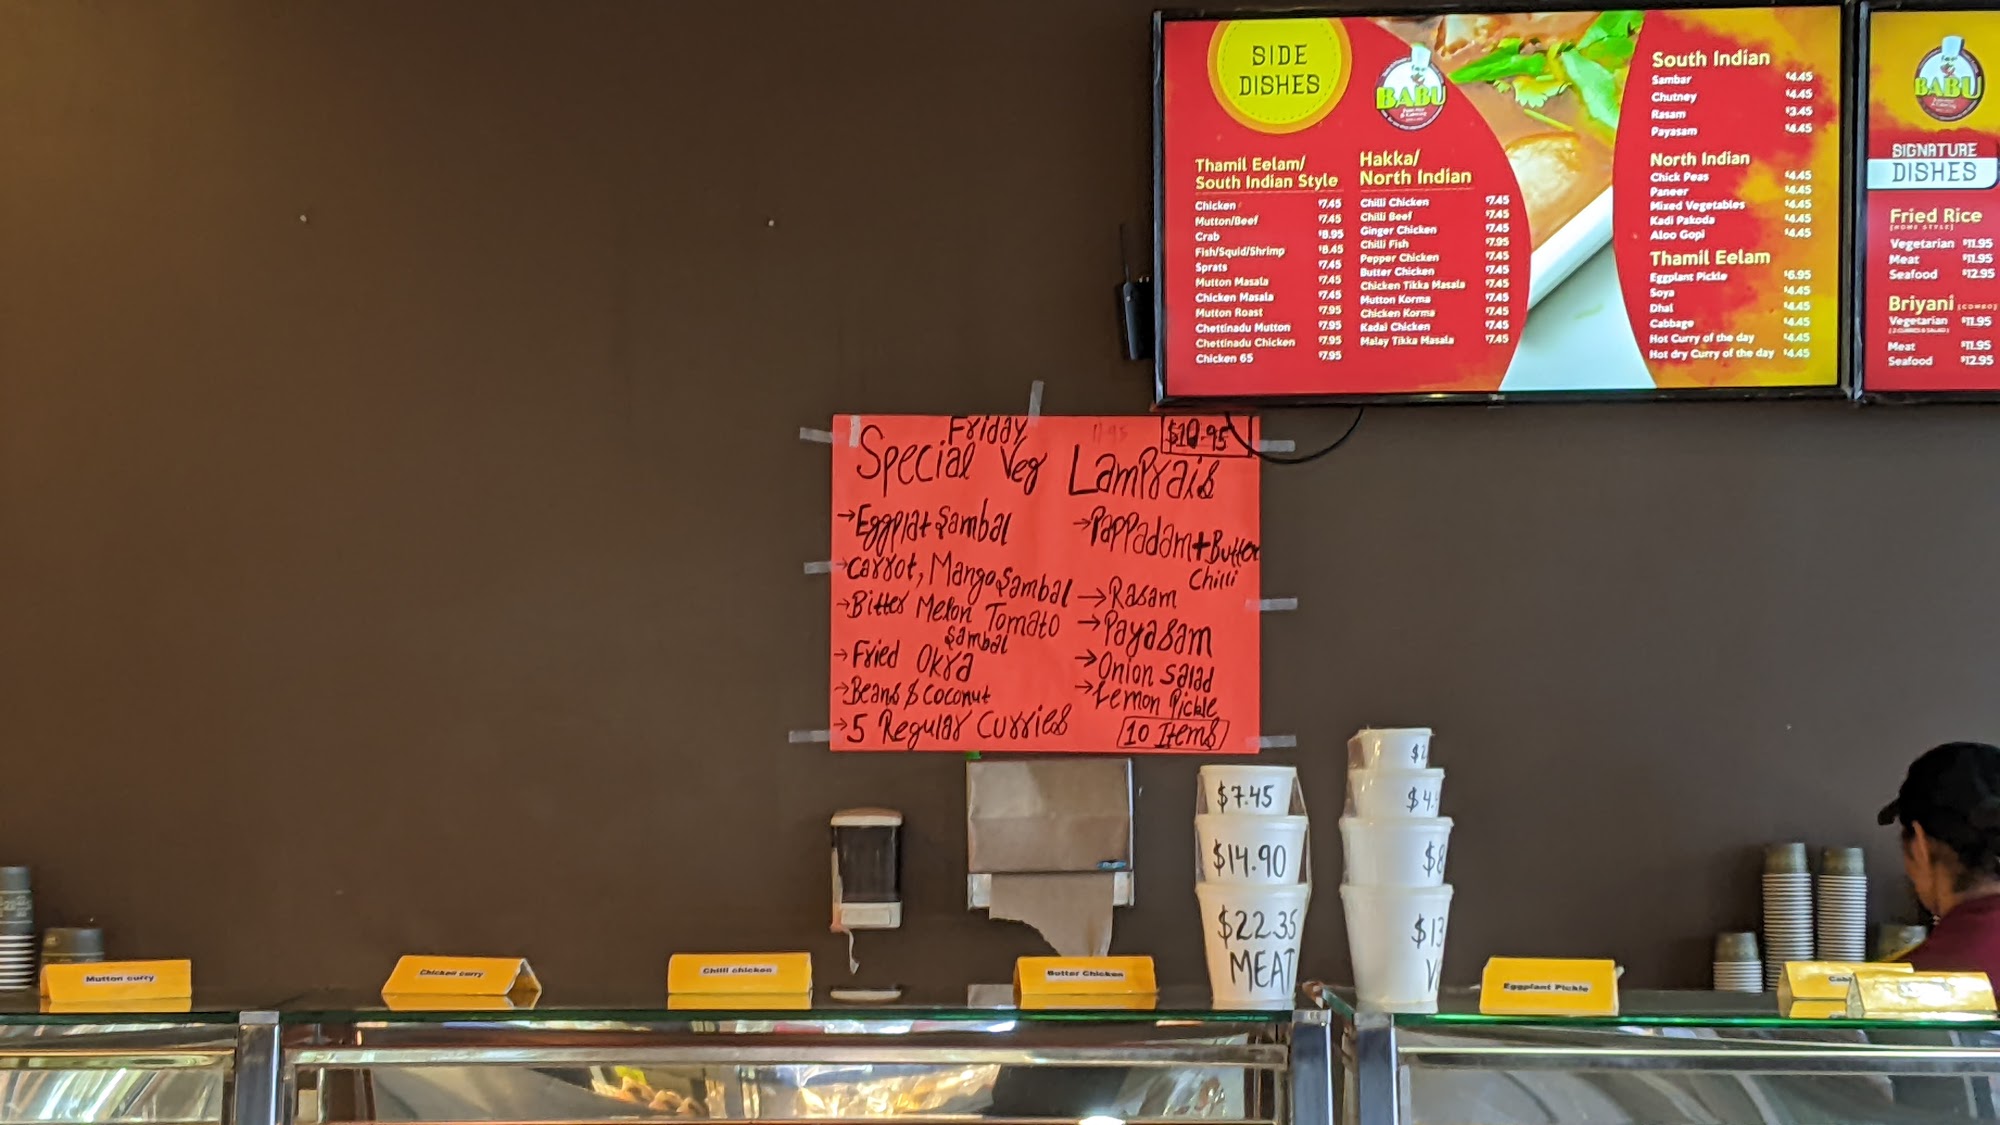 SIDE
DISHES
BABU
Thamil Eelam/
South Indian Style
Chicken $7.45
Mutton/Beef $7.45
Crab $8.95
Fish/Squid/Shrimp $8.45
Sprats $7.45
Mutton Masala $7.45
Chicken Masala $7.45
Mutton Roast $7.95
Chettinadu Mutton $7.95
Chettinadu Chicken $7.95
Chicken 65 $7.95
Hakka/
North Indian
Chilli Chicken $7.45
Chilli Beef $7.45
Ginger Chicken $7.45
Chilli Fish $7.95
Pepper Chicken $7.45
Butter Chicken $7.45
Chicken Tikka Masala $7.45
Mutton Korma $7.45
Chicken Korma $7.45
Kadai Chicken $7.45
Malay Tikka Masala $7.45
South Indian
Sambar $4.45
Chutney $4.45
Rasam $3.45
Payasam $4.45
North Indian
Chick Peas $4.45
Paneer $4.45
Mixed Vegetables $4.45
Kadi Pakoda $4.45
Aloo Gopi $4.45
Thamil Eelam
Eggplant Pickle $6.95
Soya $4.45
Dhal $4.45
Cabbage $4.45
Hot Curry of the day $4.45
Hot dry Curry of the day $4.45
BABU
SIGNATURE
DISHES
Fried Rice
[HOME STYLE]
Vegetarian $11.95
Meat $11.95
Seafood $12.95
Briyani [COMBO]
Vegetarian $11.95
[2 CURRIES & SALAD]
Meat $11.95
Seafood $12.95
Friday
11.95
Special Veg Lamprais
→Eggplat Sambal
→Carrot, Mango Sambal
→Bitter Melon Tomato
Sambal
→Fried Okra
→Beans & Coconut
→5 Regular Curries
→Pappadam+Butter
Chilli
→Rasam
→Payasam
→Onion Salad
→Lemon Pickle
10 Items
$7.45
$14.90
$22.35
MEAT
$2
$4.
$8
$13
V
Mutton curry
Chicken curry
Chilli chicken
Butter Chicken
Eggplant Pickle